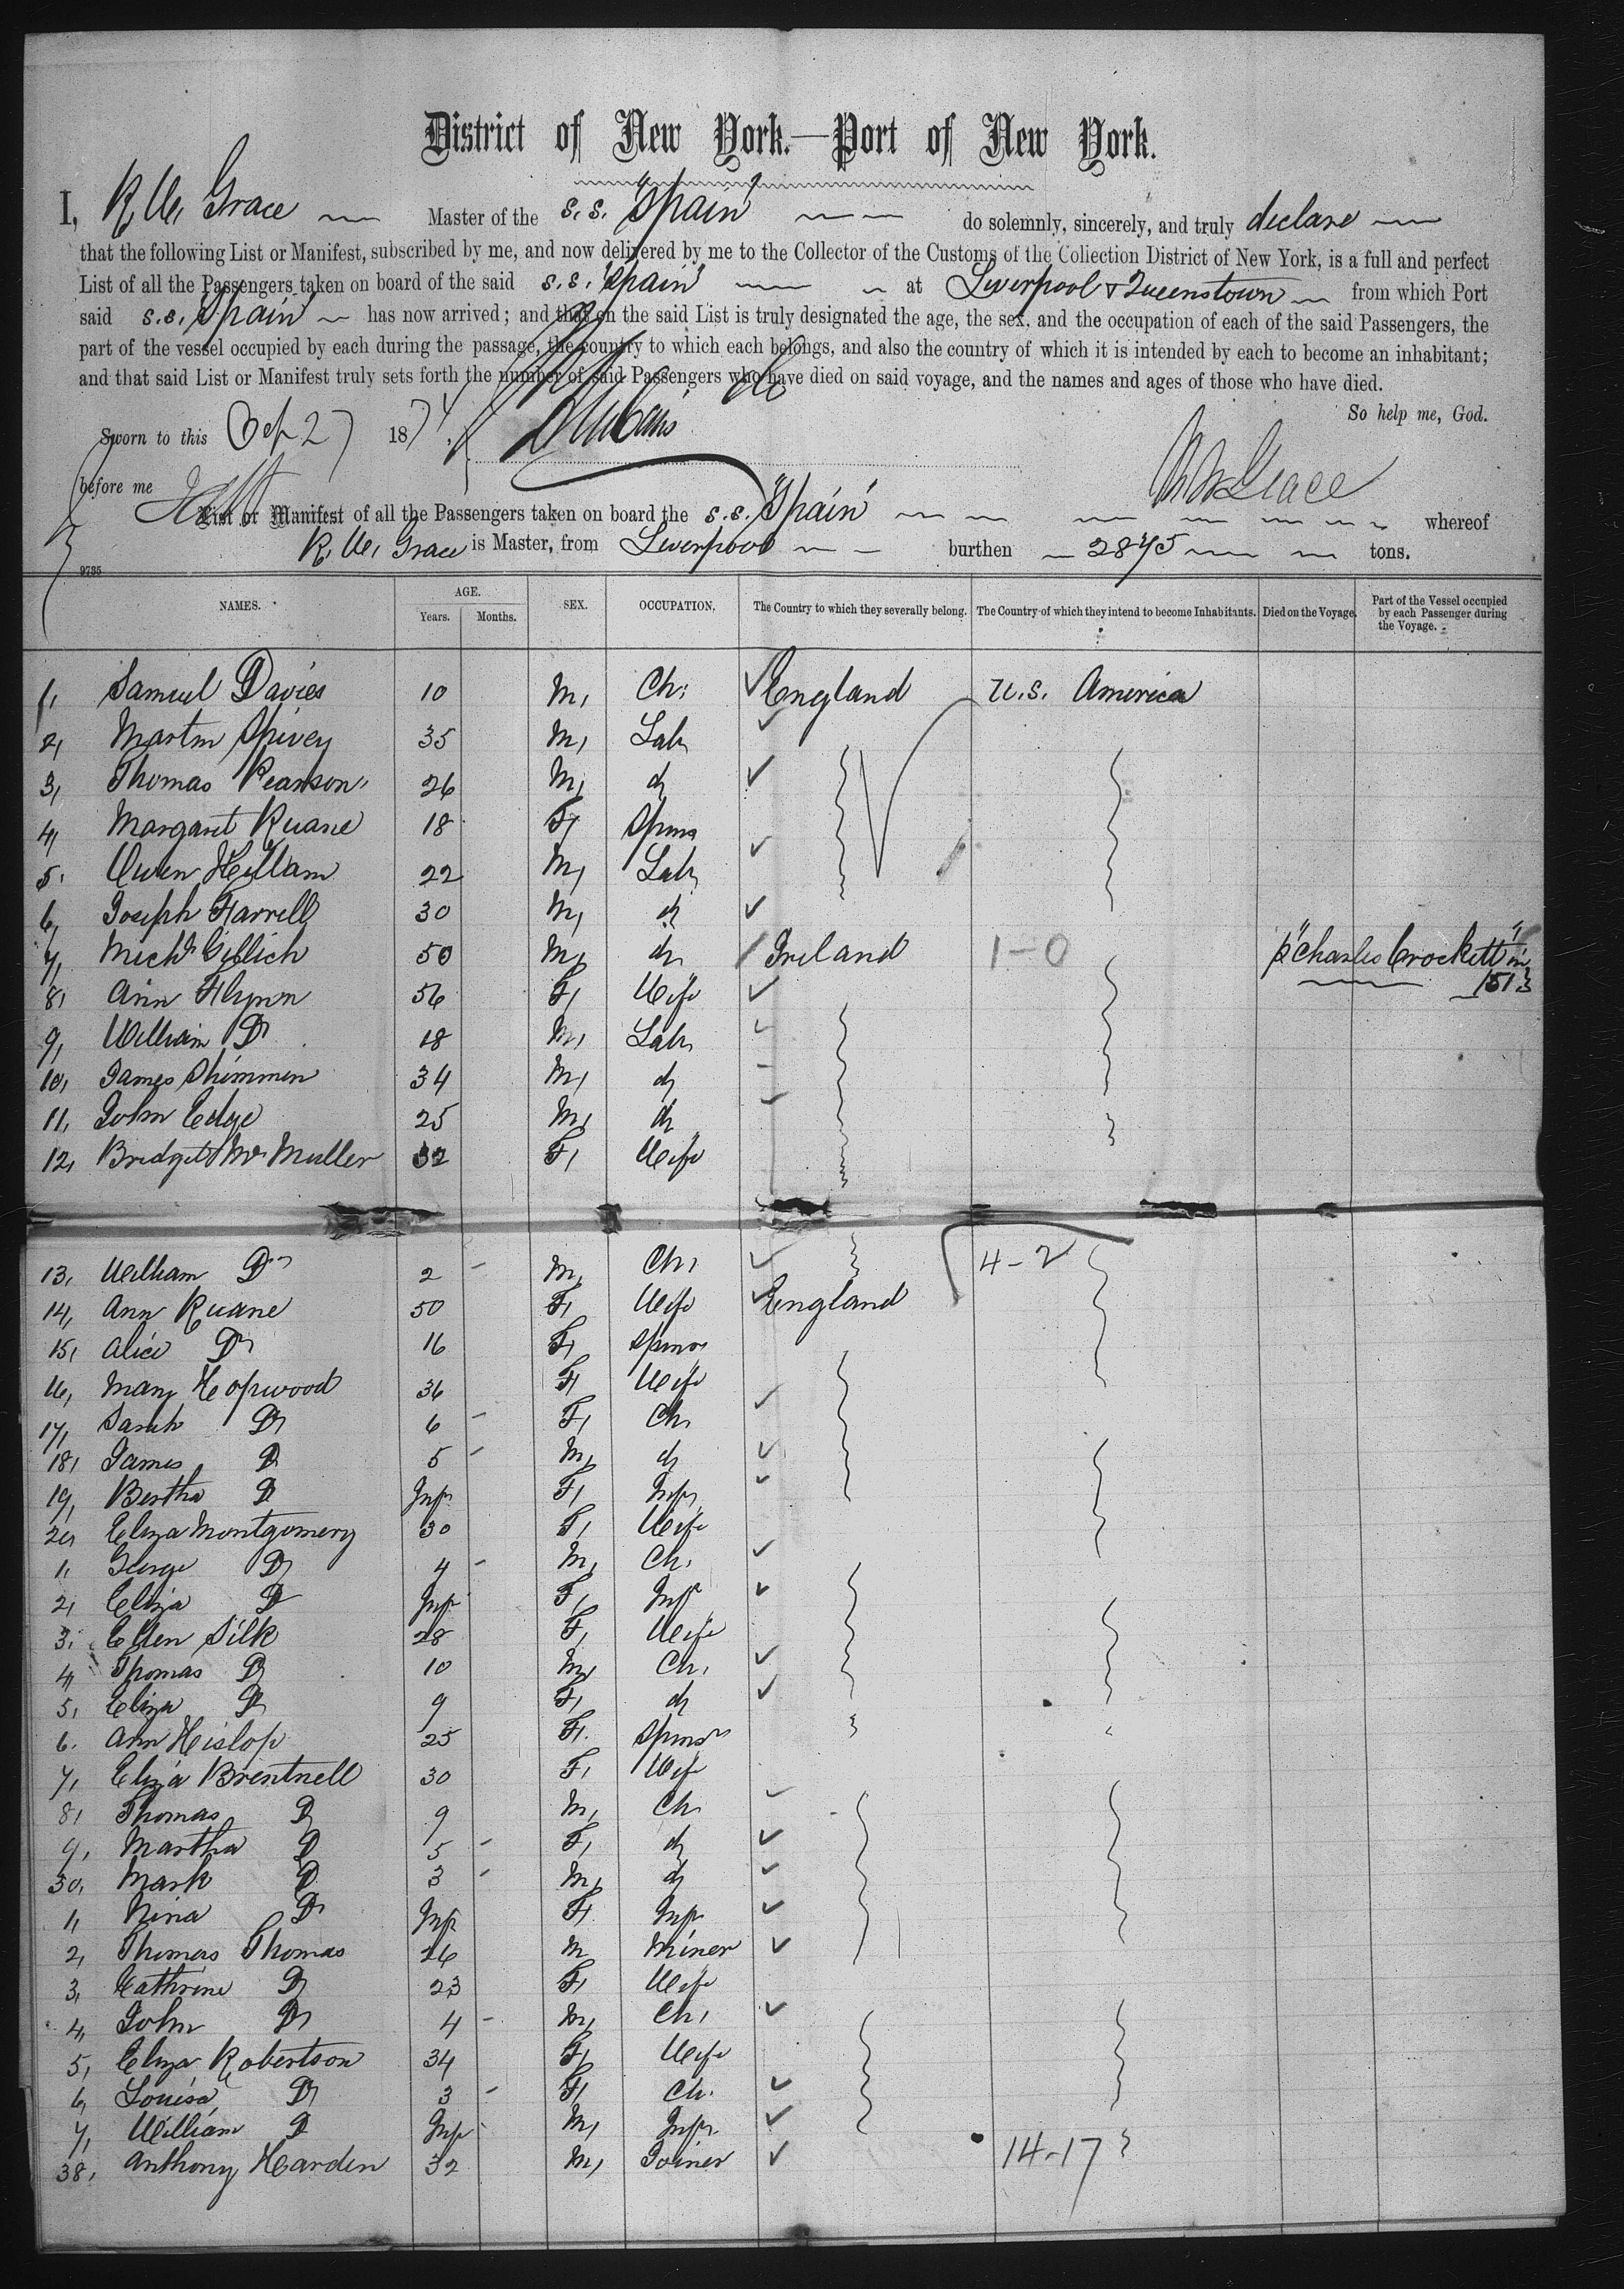 District of New York.—Port of New York.
I, R. W. Grace Master of the s.s. "Spain" do solemnly, sincerely, and truly declare
that the following List or Manifest, subscribed by me, and now delivered by me to the Collector of the Customs of the Collection District of New York, is a full and perfect
List of all the Passengers taken on board of the said s.s. "Spain" at Liverpool & Queenstown from which Port
said s.s. "Spain" has now arrived; and that on the said List is truly designated the age, the sex, and the occupation of each of the said Passengers, the
part of the vessel occupied by each during the passage, the country to which each belongs, and also the country of which it is intended by each to become an inhabitant;
and that said List or Manifest truly sets forth the number of said Passengers who have died on said voyage, and the names and ages of those who have died.
So help me, God.
Sworn to this 27 1874
R W Grace
before me
List or Manifest of all the Passengers taken on board the s.s. "Spain" whereof
R. W. Grace is Master, from Liverpool burthen 2875 tons.
9735
NAMES. AGE. Years. Months. SEX. OCCUPATION, The Country to which they severally belong. The Country of which they intend to become Inhabitants. Died on the Voyage. Part of the Vessel occupied by each Passenger during the Voyage.
1, Samuel Davies 10 M, Ch, England U.S. America
2, Martin Spivey 35 M, Lab,
3, Thomas Pearson 26 M, do
4, Margaret Ruane 18 F, Spins
5, Owen 22 M, Lab,
6, Joseph Farrell 30 M, do
7, Michl 50 M, do Ireland 1-0 p "Charles Crockett" in
1513
8, Ann Flynn 56 F, Wife
9, William Do 18 M, Lab,
10, James Shimmen 34 M, do
11, John Edge 25 M, do
12, Bridget McMuller 32 F, Wife
13, William Do 2 - M, Ch, 4-2
14, Ann Ruane 50 F, Wife England
15, Alice Do 16 F, Spins
16, Mary Hopwood 36 F, Wife
17, Sarah Do 6 - F, Ch,
18, James Do 5 - M, do
19, Bertha Do Inft F, Inft
20, Eliza Montgomery 30 F, Wife
1, George Do 4 - M, Ch,
2, Eliza Do Inft F, Inft
3, Ellen Silk 28 F, Wife
4, Thomas Do 10 M, Ch,
5, Eliza Do 9 F, do
6. Ann Hislop 25 F. Spins
7, Eliza Brentnell 30 F, Wife
8, Thomas Do 9 M, Ch,
9, Martha Do 5 - F, do
30, Mark Do 3 - M, do
1, Nina Do Inft F, Inft
2, Thomas Thomas 26 M Miner
3, Cathrine Do 23 F, Wife
4, John Do 4 - M, Ch,
5, Eliza Robertson 34 F, Wife
6, Louisa Do 3 - F, Ch.
7, William Do Inft M, Inft
38, Anthony Harden 32 M, Joiner 14-17